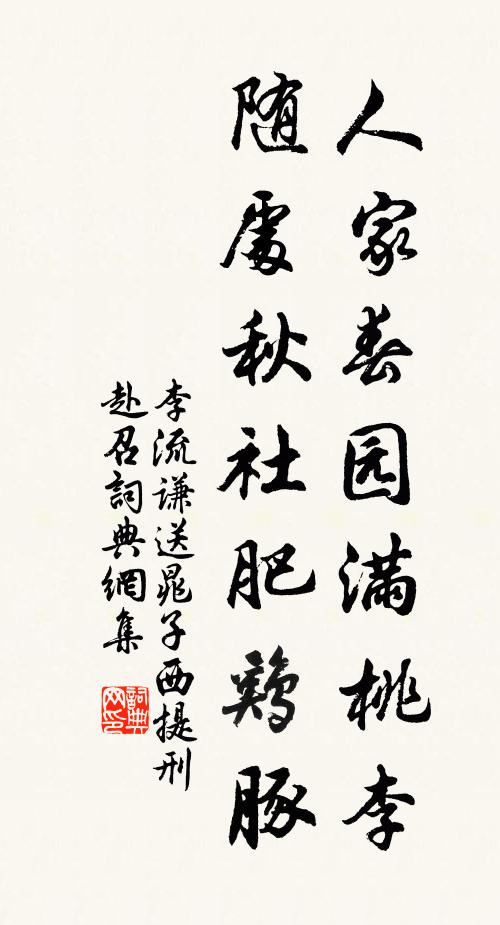 人家春园满桃李
随處秋社肥鷄豚
李流谦送晁子西提刑
赴召詞典網集
詞典
网印